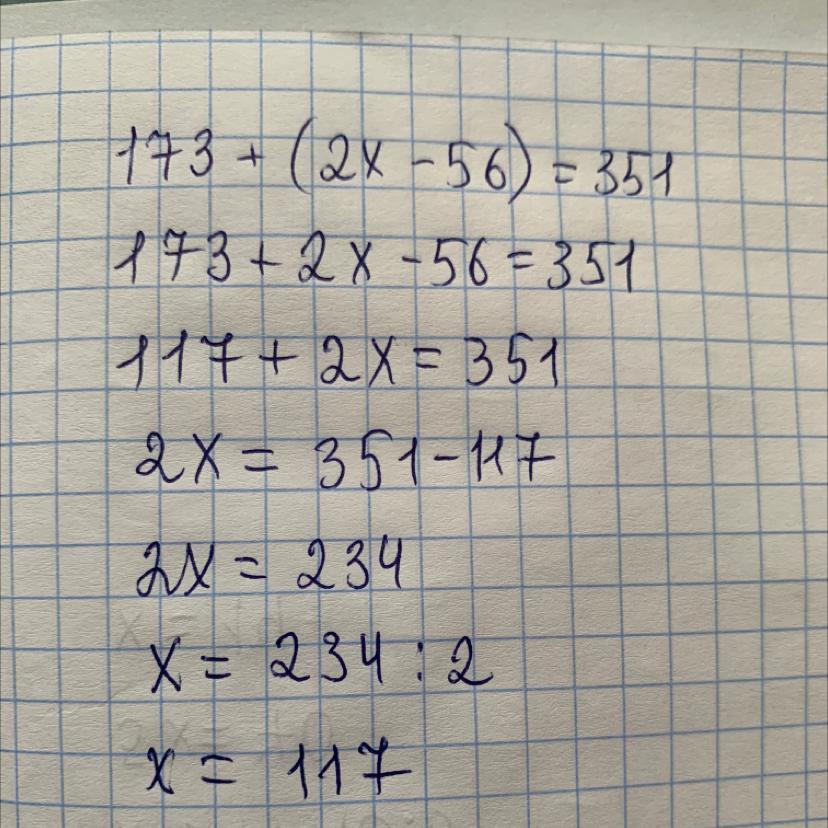 173 + (2x - 56) = 351
173 + 2x - 56 = 351
117 + 2x = 351
2x = 351 - 117
2x = 234
x = 234 : 2
x = 117